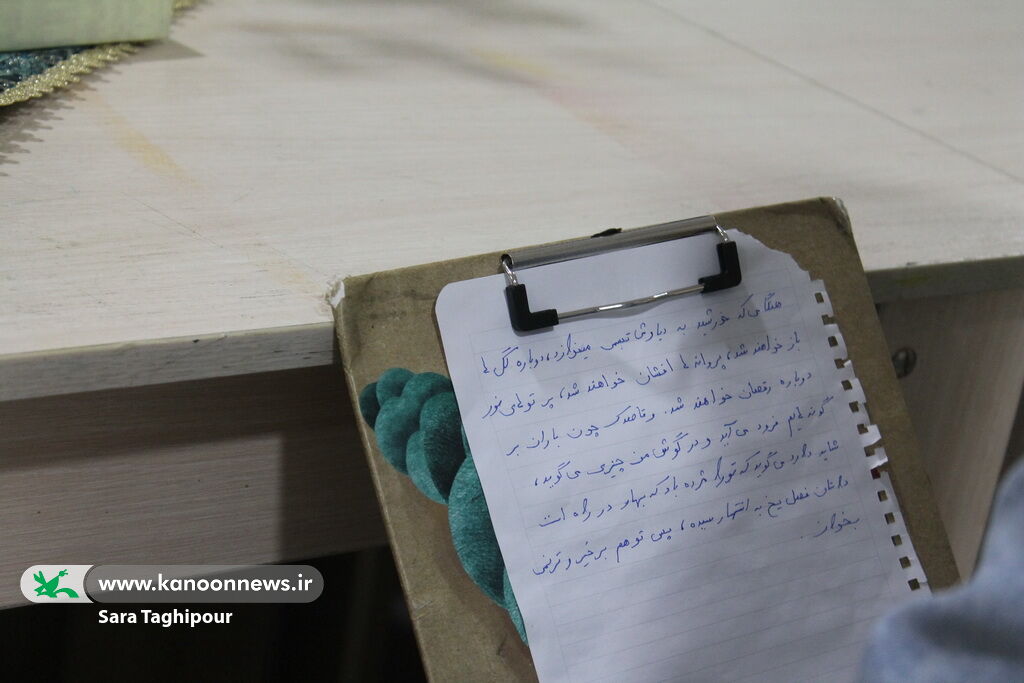 هنگامی که خورشید به دیار ما تبسمی میندازد، دوباره گل ها
باز خواهند شد، پروانه ها افشان خواهند شد، پرتوهای نور
دوباره رقصان خواهند شد. و قاصدک چون باران بر
گونه هایم فرود می آید و در گوش من چیزی می گوید،
شاید دارد می گوید که تو را مژده باد که بهار در راه است
داستان فصل یخ به انتها رسیده، پس تو هم برخیز و ترنمی
بخوان.
www.kanoonnews.ir
Sara Taghipour